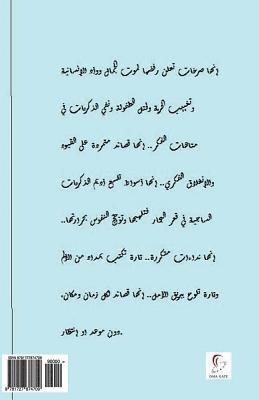 إنها صرخات تعلن رفضها لموت الجمال ووأد الإنسانية
وتغييب الحرية وقتل الطفولة ونفي الذكريات في
متاهات الفكر.. إنها قصائد متمردة على القيود
والإنغلاق الفكري.. إنها أسواط تلسع أديم الذكريات
الساجية في قعر البحار فتلهبها وتؤجج النفوس بحرارتها..
إنها نداءات متكررة.. تارة تكتب بمداد من الألم
وتارة تلوح ببريق الأمل.. إنها قصائد لكل زمان ومكان،
دون موعد او إنتظار..
90000
ISBN 9781727874709
9 781727 874709